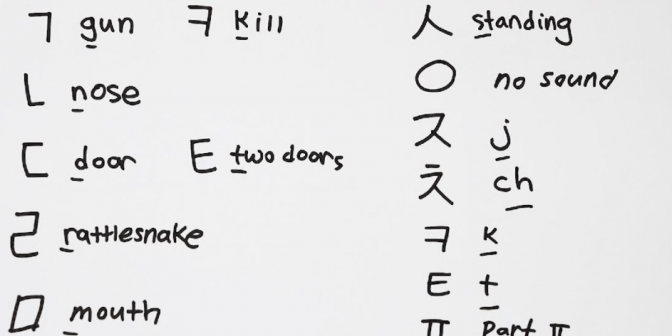 ㄱ gun ㅋ kill
ㄴ nose
ㄷ door ㅌ two doors
ㄹ rattlesnake
ㅁ mouth
ㅅ standing
ㅇ no sound
ㅈ j
ㅊ ch
ㅋ k
ㅌ t
ㅍ Part II